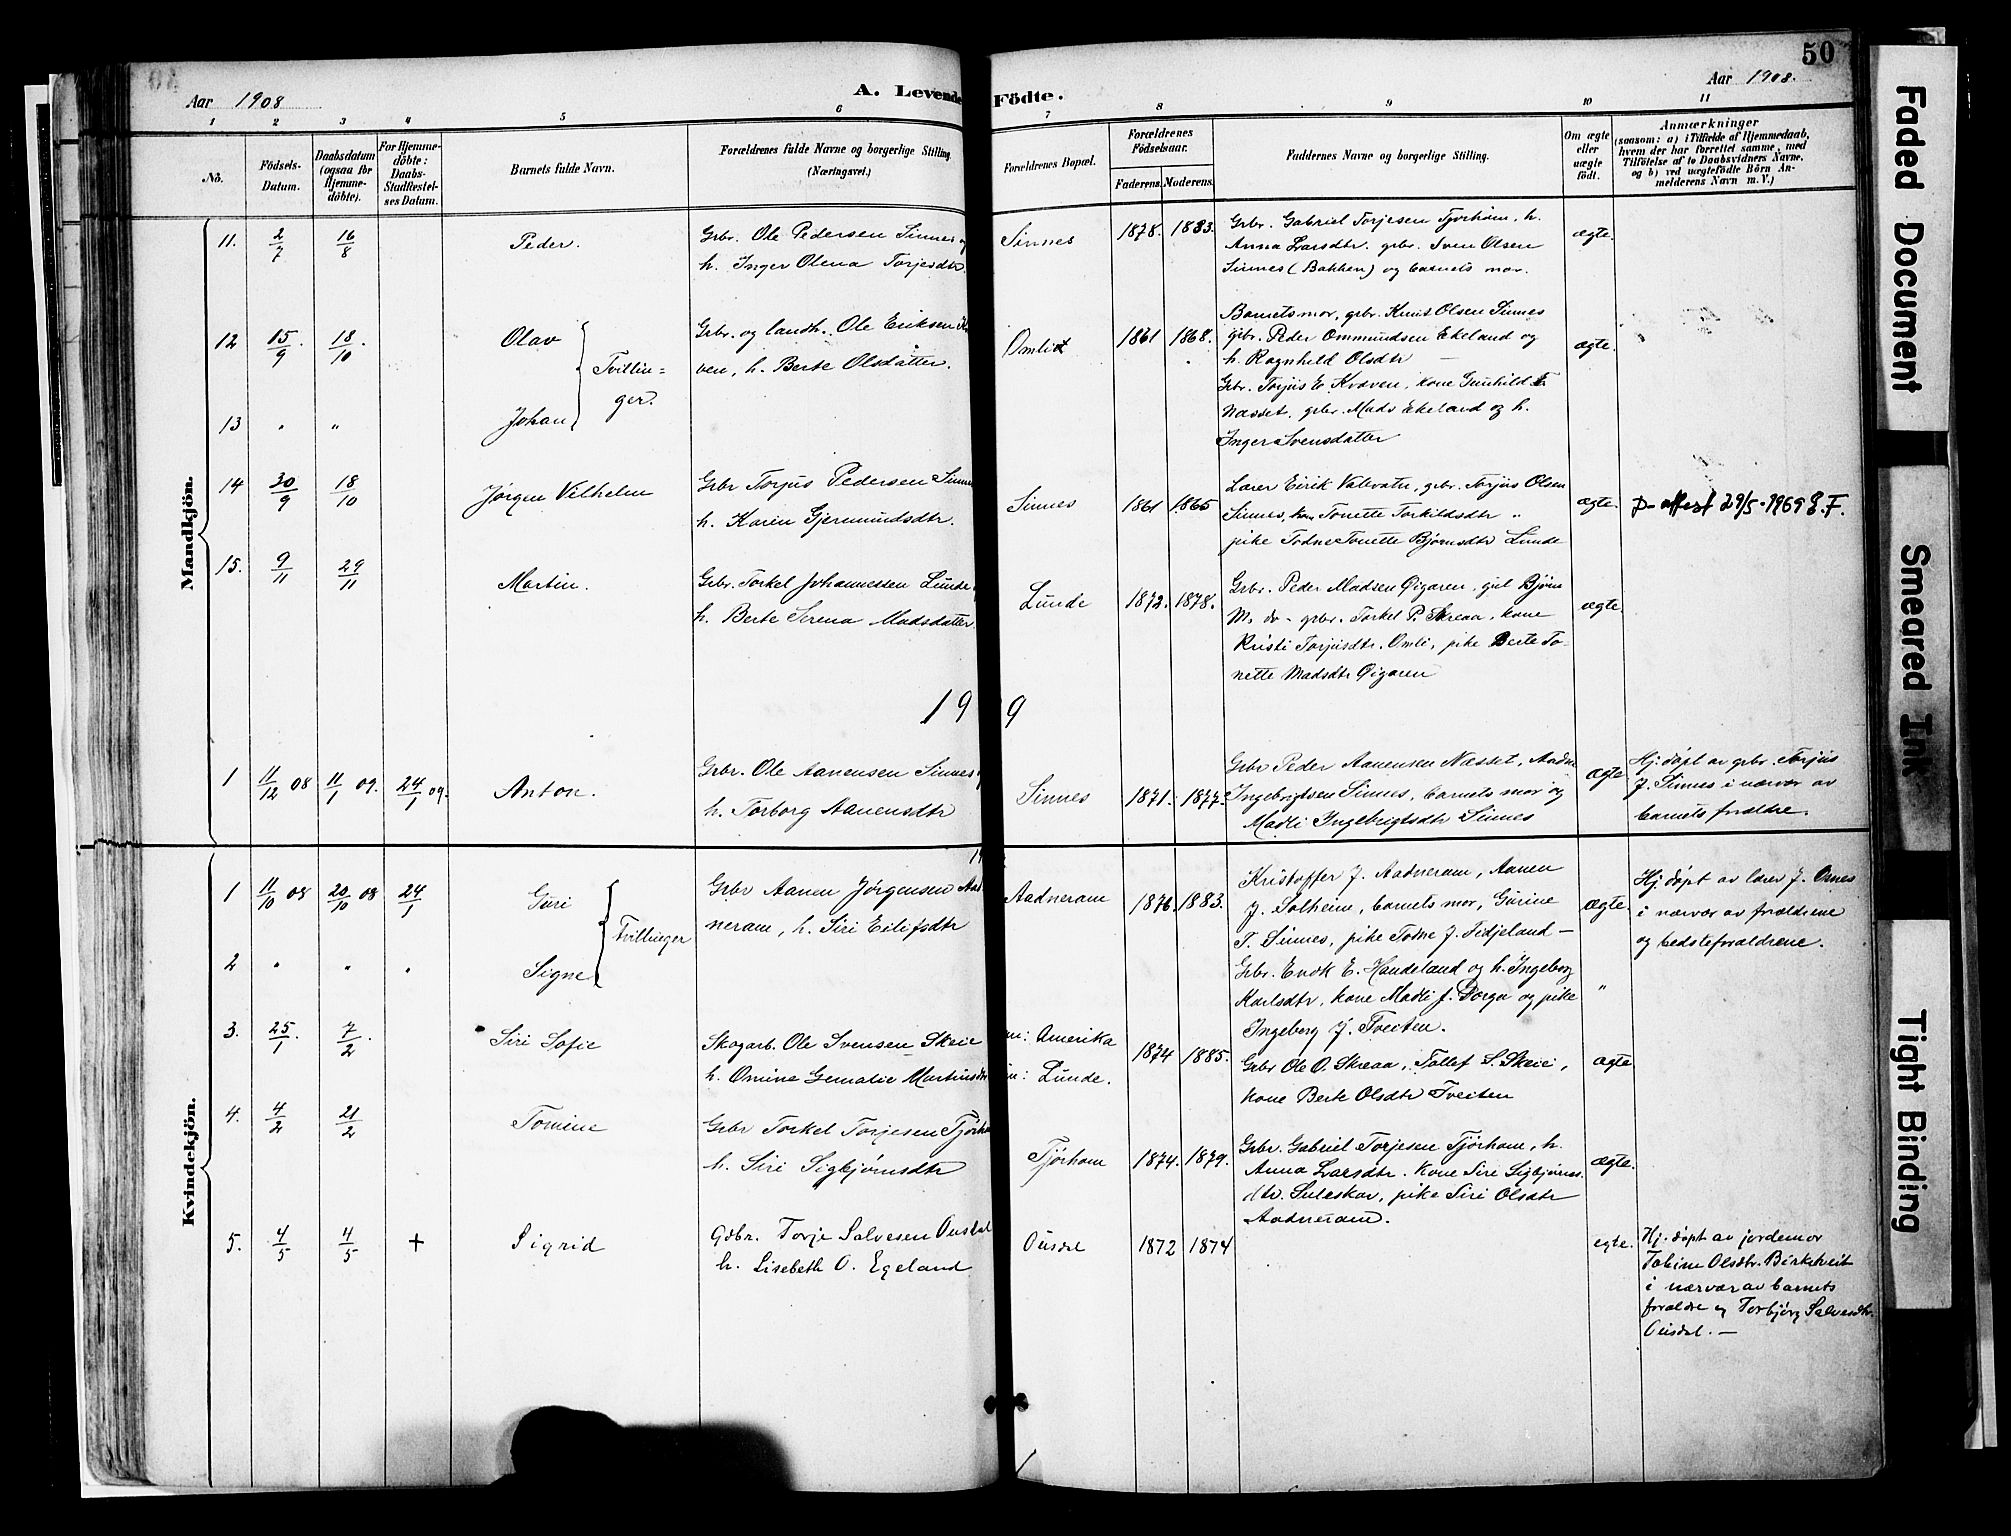 50
Aar 1908
A. Levende Födte.
Aar 1908.
1 2 3 4 5 6 7 8 9 10 11
No.
Födsels-Datum.
Daabsdatum (ogsaa for Hjemmedöbte).
For Hjemmedöbte: Daabs-Stadfæstelses Datum.
Barnets fulde Navn.
Forældrenes fulde Navne og borgerlige Stilling. (Næringsvei.)
Forældrenes Bopæl.
Forældrenes Födselsaar.
Faderens. Moderens.
Faddernes Navne og borgerlige Stilling.
Om ægte eller uægte födt.
Anmærkninger
(saasom: a) i Tilfælde af Hjemmedaab, hvem der har forrettet samme, med Tilföielse af to Daabsvidners Navne, og b) ved uægtefödte Börn Anmelderens Navn m. V.)
Mandkjön.
11. 2/7 16/8 Peder.
Grbr. Ole Pedersen Sinnes og
h. Inger Olena Torjesdtr.
Sinnes 1878. 1883.
Grbr. Gabriel Torjesen Tjørhom, h.
Anna Larsdtr. grbr. Sven Olsen
Sinnes (Bakken) og barnets mor.
ægte.
12 15/9. 18/10. Olav
Tvillinger.
Grbr. og landh. Ole Eriksen
ven, h. Berte Olsdatter.
Omli 1861 1868.
Barnets mor, grbr. Knut Olsen Sinnes
grbr. Peder Ommundsen Ekeland og
h. Ragnhild Olsdtr —
ægte.
13 " " Johan
Grbr. Torjus E. Kvæven, kone Gunhild T.
Næsset, grbr. Mads Ekeland og h.
Inger Svensdatter
14 30/9 18/10 Jørgen Vilhelm
Grbr Torjus Pedersen Sinnes
h. Karen Gjermundsdtr.
Sinnes 1861 1865
Lærer Eirik Valevatn, grbr. Torjus Olsen
Sinnes, kone Tonette Torkildsdtr "
pike Todne Tonette Bjørnsdtr Lunde
ægte.
D-attest 29/5-1969 E.F.
15. 9/11 29/11 Martin.
Grbr. Torkel Johannessen Lunde,
h. Berte Serena Madsdatter.
Lunde 1872. 1878.
Grbr. Peder Madsen Øigaren, gut Bjørn
M. do - grbr. Torkel P. Skreaa, kone
Kristi Torjusdtr. Omli, pike Berte To-
nette Madsdtr Øigaren
ægte.
19 9
1 11/12 08 11/1 09. 24/1 09. Anton.
Grbr. Ole Aanensen Sinnes,
h. Torborg Aanensdtr
Sinnes 1871. 1877.
Grbr Peder Aanensen Næsset, Aadne
Ingebrigtsen Sinnes, barnets mor og
Madli Ingebrigtsdtr Sinnes
ægte
Hj. døpt av grbr. Torjus
J. Sinnes i nærvær av
barnets forældre.
Kvindekjön.
1 11/10 08 20/10 08 24/1 Guri
Tvillinger
Grbr Aanen Jørgensen Aad-
neram, h. Siri Eilifsdtr
Aadneram 1876. 1883.
Kristoffer J. Aadneram, Aanen
J. Solheim, barnets mor, Gurine
T. Sinnes, pike Todne J. Fidjeland —
ægte.
Hj. døpt av lærer J. Omes
i nærvær av forældrene
og bedsteforældrene.
2 " " " Signe
Grbr. Enok E. Handeland og h. Ingeborg
Karlsdtr, kone Madli J. Dorga og pike
Ingeborg J. Tveiten.
"
3. 25/1. 7/2. Siri Sofie
Skogarb. Ole Svensen Skeie
h. Omine Gemalie Martinsdtr
m: Amerika
in: Lunde.
1874 1885.
Grbr Ole O. Skreaa, Tollef S. Skeie,
kone Berte Olsdtr Tveiten
ægte
4. 4/2 21/2 Tomine
Grbr Torkel Torjesen Tjørhom
h. Siri Sigbjørnsdtr
Tjørhom 1874. 1879.
Grbr. Gabriel Torjesen Tjørhom, h.
Anna Larsdtr. Kone Siri Sigbjørns-
dtr. Suleskar, pike Siri Olsdtr
Aadneram.
ægte.
5. 4/5 4/5 + Sigrid
Gdbr. Torje Salvesen Ousdal
h. Lisebeth O. Egeland
Ousdal 1872 1874
egte.
Hj. døpt av jordemor
Tobine Olsdtr. Birketveit
i nærvær av barnets
forældre og Torbjørg Salvesdtr.
Ousdal. —
Faded Document
Smeared Ink
Tight Binding